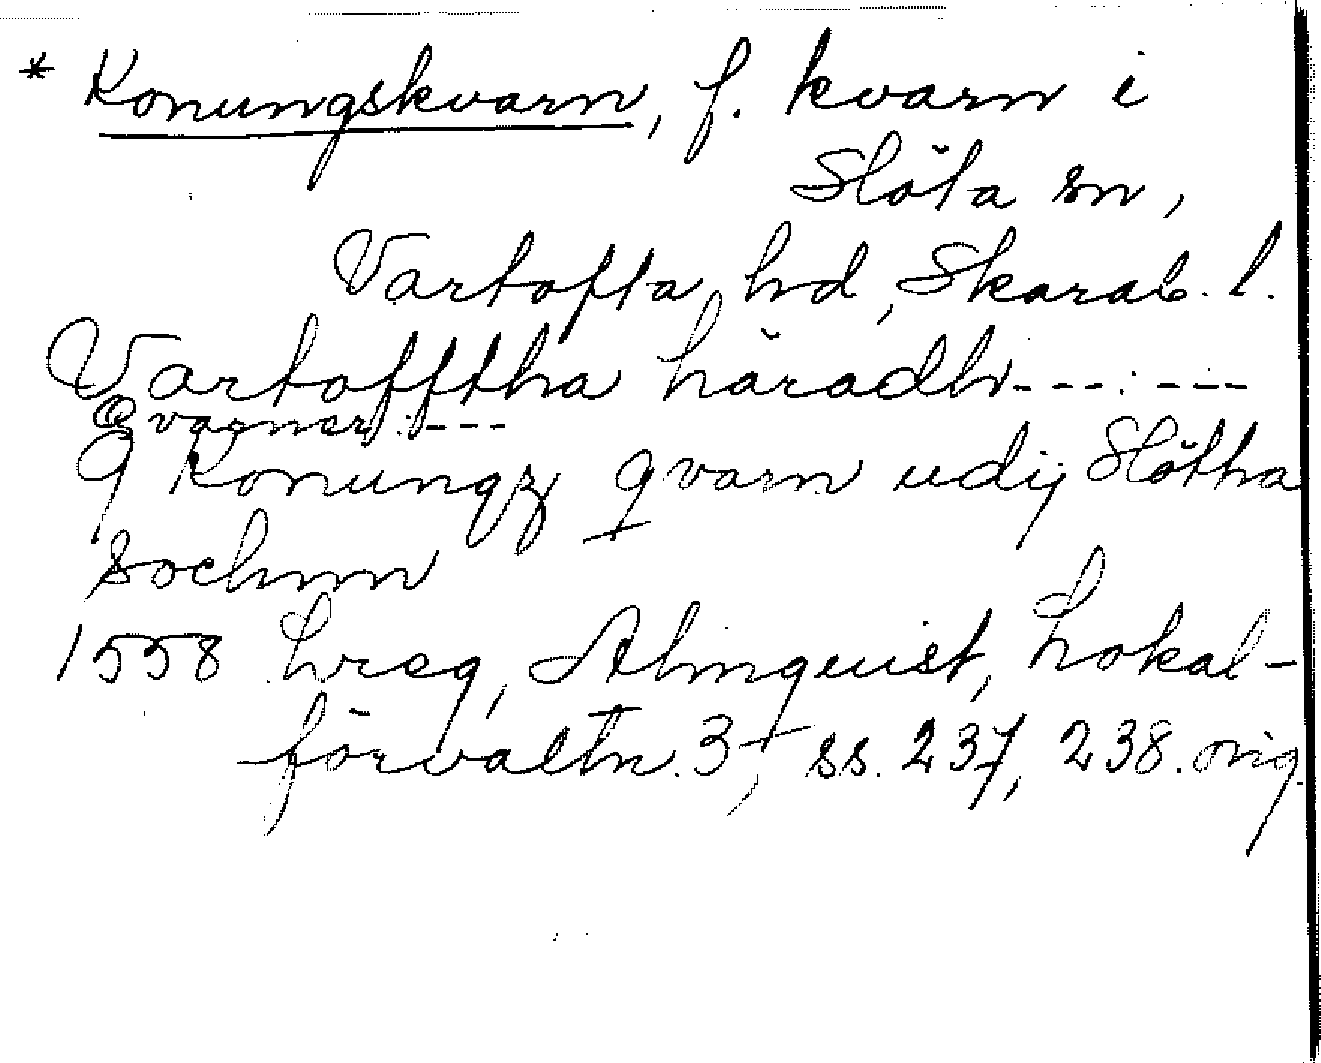 * Konungskvarn, f. kvarn i
Slöta sn,
Vartofta hd, Skarab. l.
Vartofftha häradh---:---
Qvarner:---
9 Konungz qvarn udij Slötha
sochnn
1558 hreg, Almquist, Lokal-
förvaltn. 3, ss. 237, 238. orig.